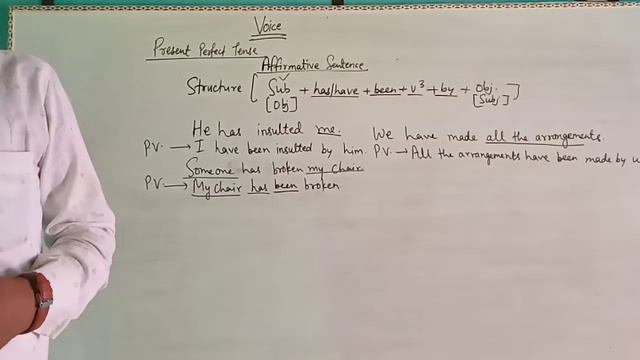 Voice
Present Perfect Tense
Affirmative Sentence
Structure [ Sub + has/have + been + v³ + by + Obj. ]
[Obj] [Subj]
He has insulted me. We have made all the arrangements.
P.V. → I have been insulted by him. P.V. → All the arrangements have been made by u
Someone has broken my chair
P.V. → My chair has been broken